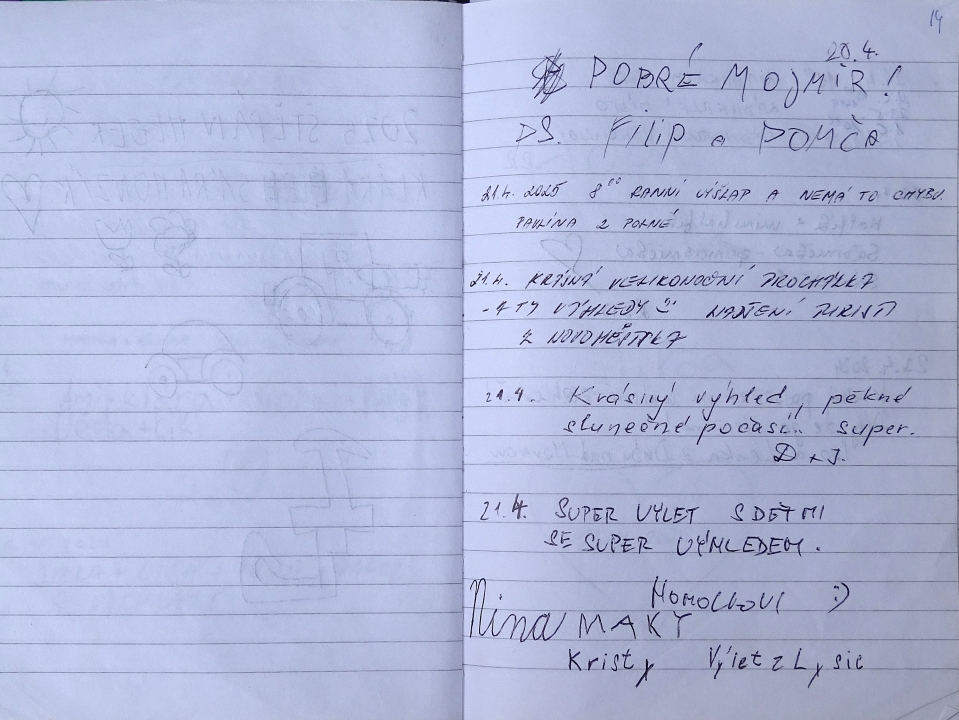 14
20.4.
DOBRÉ MOJMÍR!
DS. FILIP a DOMČA
21.4. 2025 8⁰⁰ RANNÍ VÝŠLAP A NEMÁ TO CHYBU.
PAVLÍNA Z POLNÉ
21.4. KRÁSNÁ VELIKONOČNÍ PROCHÁZKA
- A TY VÝHLEDY :) NADŠENÍ TURISTI
Z NOVOMĚSTSKA
21.4. Krásný výhled, pěkné
slunečné počasí.. super.
D + J.
21.4. SUPER VÝLET S DĚTMI
SE SUPER VÝHLEDEM.
:)
Nina MAKY
Kristy Výlet z Lysic